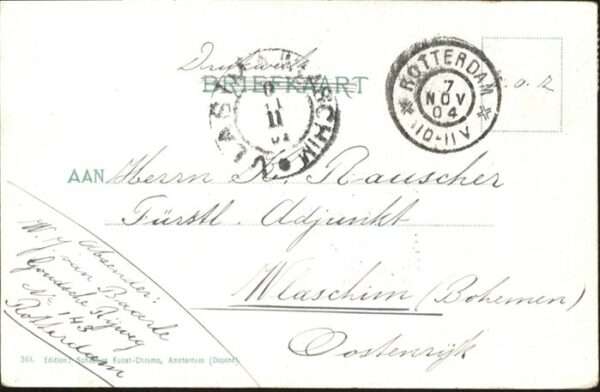 Drukwerk
BRIEFKAART
VLAŠIM WLASCHIM
9
11
ROTTERDAM
7
NOV
04
10-11V
T.O.Z
AAN Herrn K. Rauscher
Fürstl. Adjunkt
Wlaschim (Bohemen)
Oostenrijk
Absender:
W. J. van Baarle
Goudsche Rijweg
No 143
Rotterdam
361. Edition: Kunst-Chromo, Amsterdam (Depose).